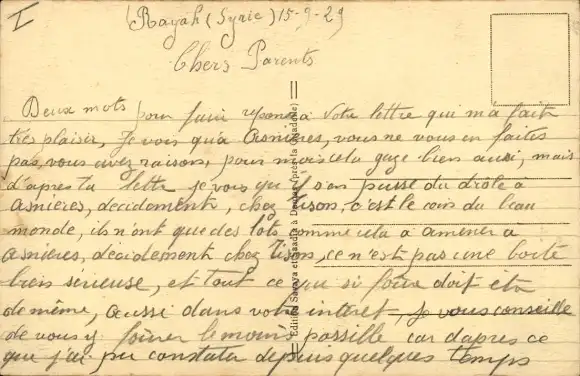 I
Rayah (Syrie) 15-9-29
Chers Parents
Deux mots pour faire reponce a votre lettre qui ma fait
tres plaisir, Je vois qu'a Asnieres, vous ne vous en faites
pas, vous avez raisons, pour moi cela gaze bien aussi, mais
d'apres ta lettre je vois qu'il s'en passe du drôle a
Asnières, decidement, chez Tison, c'est le coin du beau
monde, ils n'ont que des lots comme cela a amener a
Asnières, décidement chez Tison, ce n'est pas une boite
bien sérieuse, et tout ce qui si foure doit etre
de même, aussi dans votre interet, Je vous conseille
de vous y foürer le moins possille car dapres ce
que j'ai pu constater depuis quelques temps
Edition Savoya et Saadia à Damas (près la brigade)